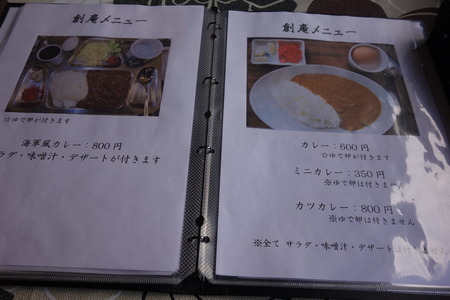 創庵メニュー
☆ゆで卵が付きます
海軍風カレー：800円
ラダ・味噌汁・デザートが付きます
創庵メニュー
カレー：600円
☆ゆで卵が付きます
ミニカレー：350円
※ゆで卵は付きません
カツカレー：800円
※ゆで卵は付きません
※全て サラダ・味噌汁・デザートは付くません。